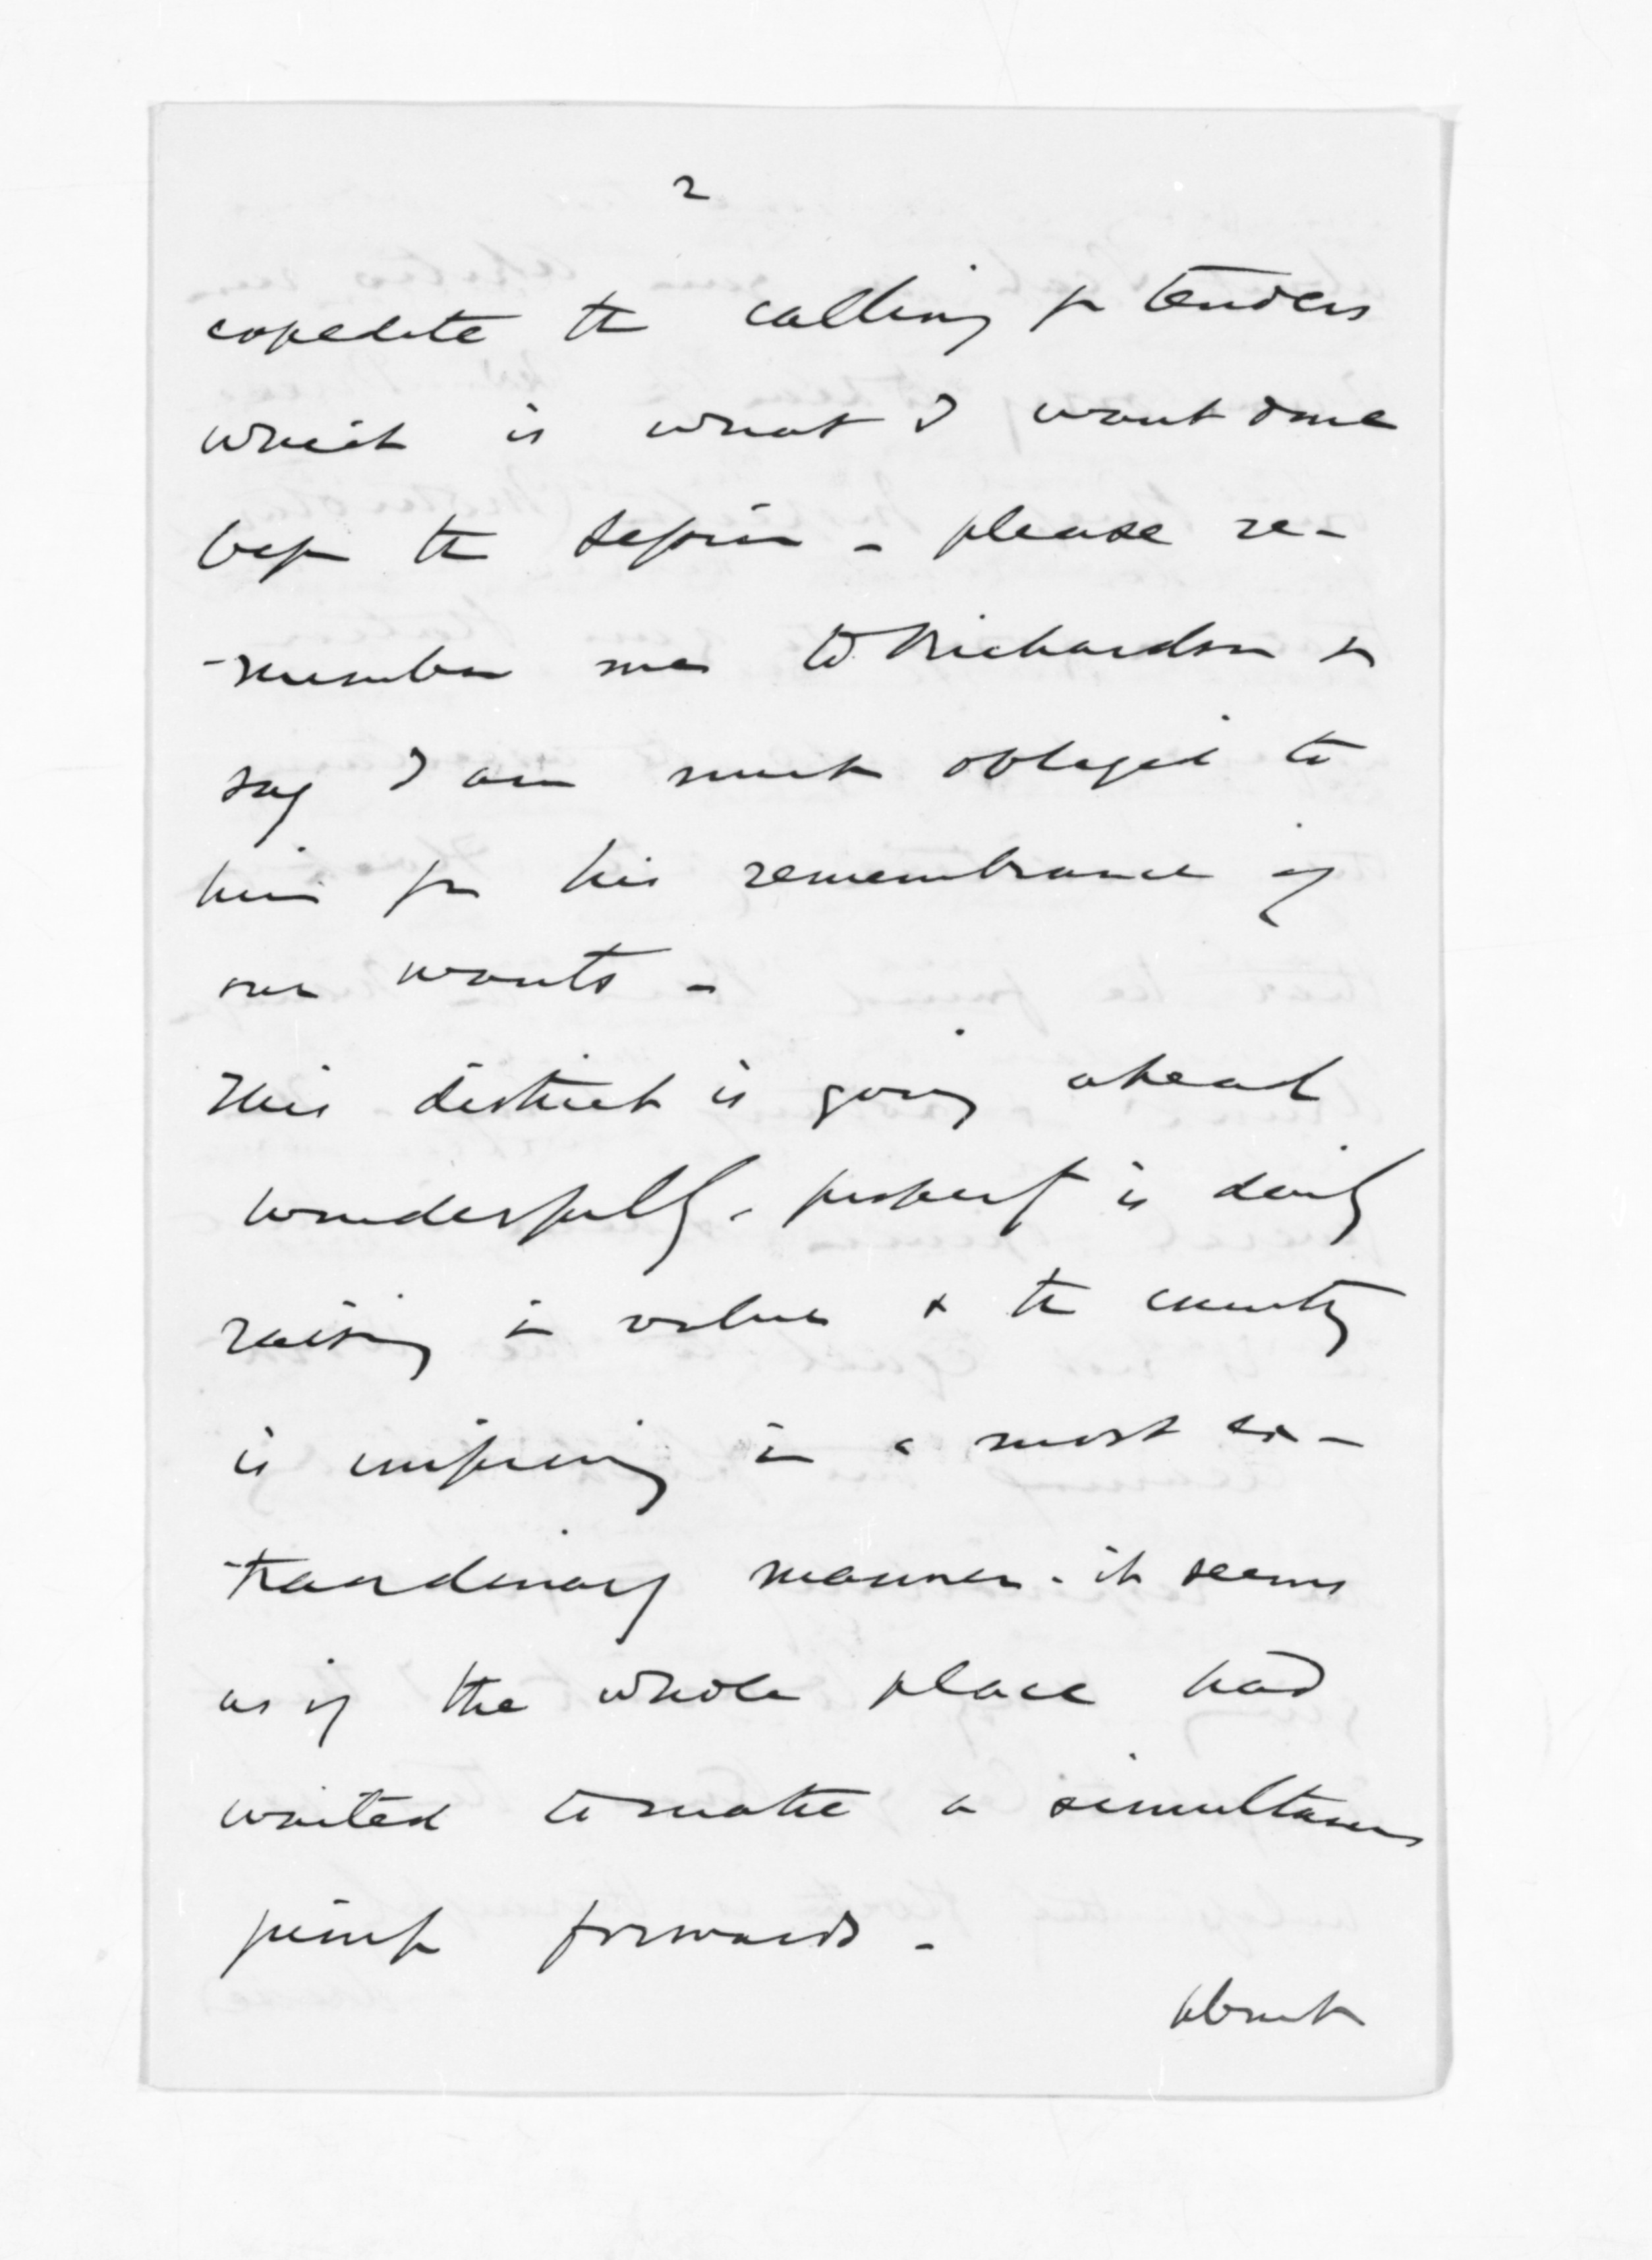 2
expedite the calling for tenders
which is what I want done
before the session - please re-
-member me to Richardson &
say I am much obliged to
him for his remembrance of
our wants -
This district is going ahead
wonderfully - property is daily
raising in value & the country
is improving in a most ex-
-traordinary manner - it seems
as if the whole place had
waited to make a simultaneous
jump forwards -
About